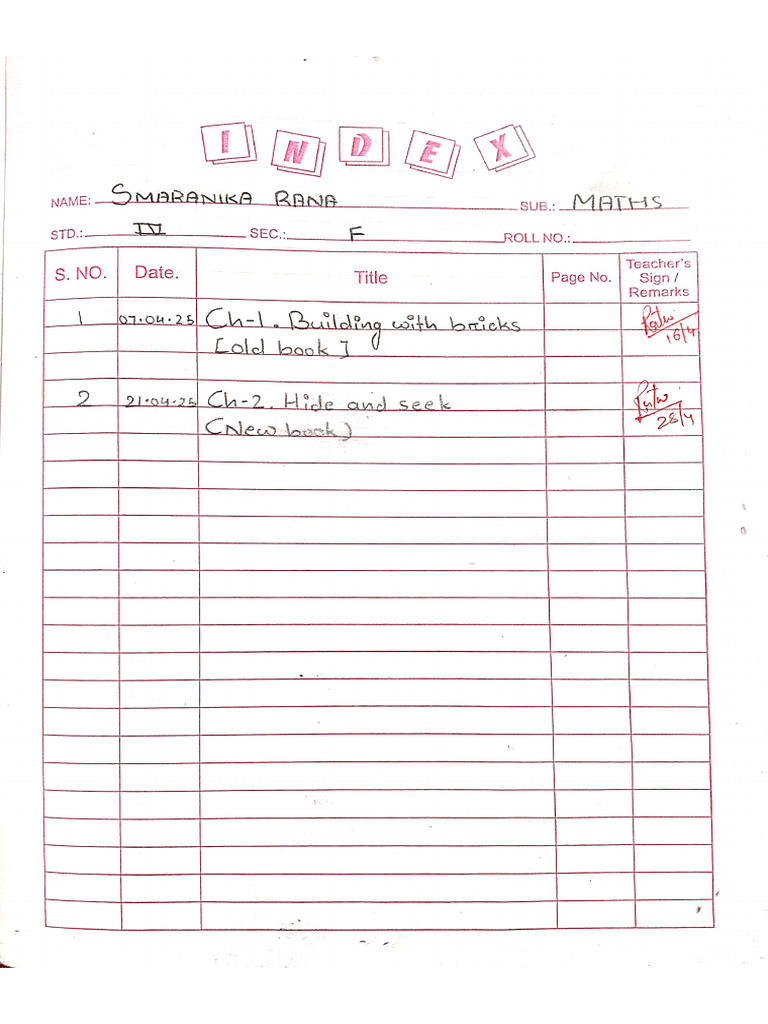 INDEX
NAME: SMARANIKA RANA SUB.: MATHS
STD.: IV SEC.: F ROLL NO.:
S. NO. Date. Title Page No. Teacher's Sign / Remarks
1 07.04.25 Ch-1. Building with bricks 16/4
[old book]
2 21.04.25 Ch-2. Hide and seek 28/4
(New book)